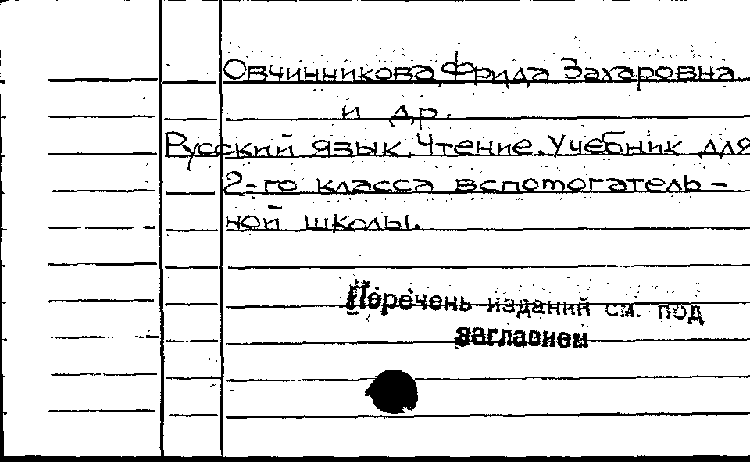 Овчинникова, Фрида Захаровна
и др.
Русский язык. Чтение. Учебник для
2-го класса вспомогатель-
ной школы.
Перечень изданий см. под
заглавием